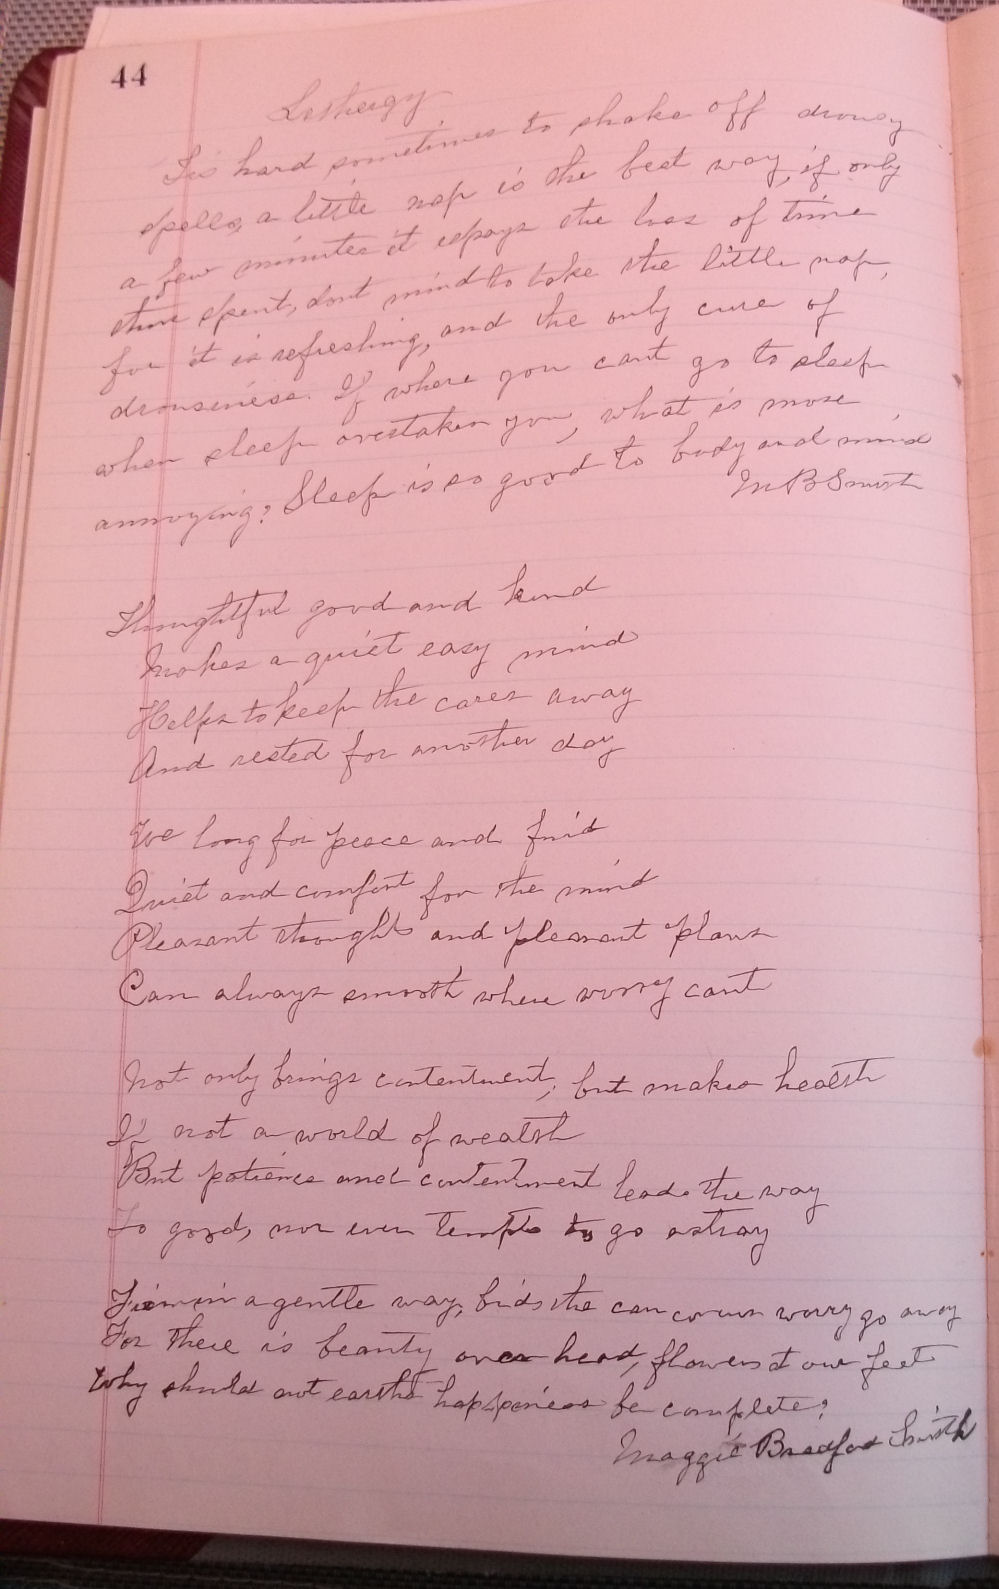 44
Lethergy
Tis hard sometimes to shake off drousy
spells, a little nap is the best way, if only
a few minutes it repays the loss of time
thus spent, dont mind to take the little nap,
for it is refreshing, and the only cure of
drousiness. If where you cant go to sleep
when sleep overtakes you, what is more
annoying? Sleep is so good to body and mind
M B Smith
Thoughtful good and kind
Makes a quiet easy mind
Helps to keep the cares away
And rested for another day
We long for peace and find
Quiet and comfort for the mind
Pleasant thoughts and pleasant plans
Can always smooth where worry cant
Not only brings contentment, but makes health
If not a world of wealth
But patience and contentment leads the way
To good, nor ever tempts to go astray
Firm in a gentle way, bids the worry go away
For there is beauty over head, flowers at our feet
Why should not earths happiness be complete?
Maggie Bradford Smith